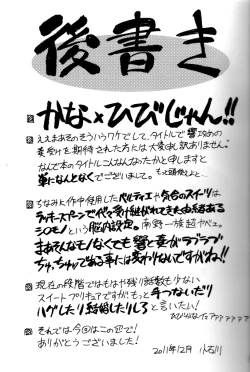 後書き
かな×ひびじゃん!!
ええまあそのそういうワケでして、タイトルで響攻めの
奏受けを期待された方には大変申し訳ありません。
なんで本のタイトルこんなんなったかと申しますと
単になんとなくでございまして。
ちなみに作中使用したパルティエや気合のスイーツは
ラッキースプーンで代々受け継がれてきた由緒ある
シロモノという脳内設定。南野一族超かっけー
まあそんなモノなくても響と奏がラブラブ
ちゅっちゅである事には変わりないですがね!!
現在の段階ではもはや残り話数も少ない
スイートプリキュアですが、もっと手つないだり
ハグしたり結婚したりしろと言いたい!
それでは今回はこの辺で!
ありがとうございました!
2011年12月 小石川